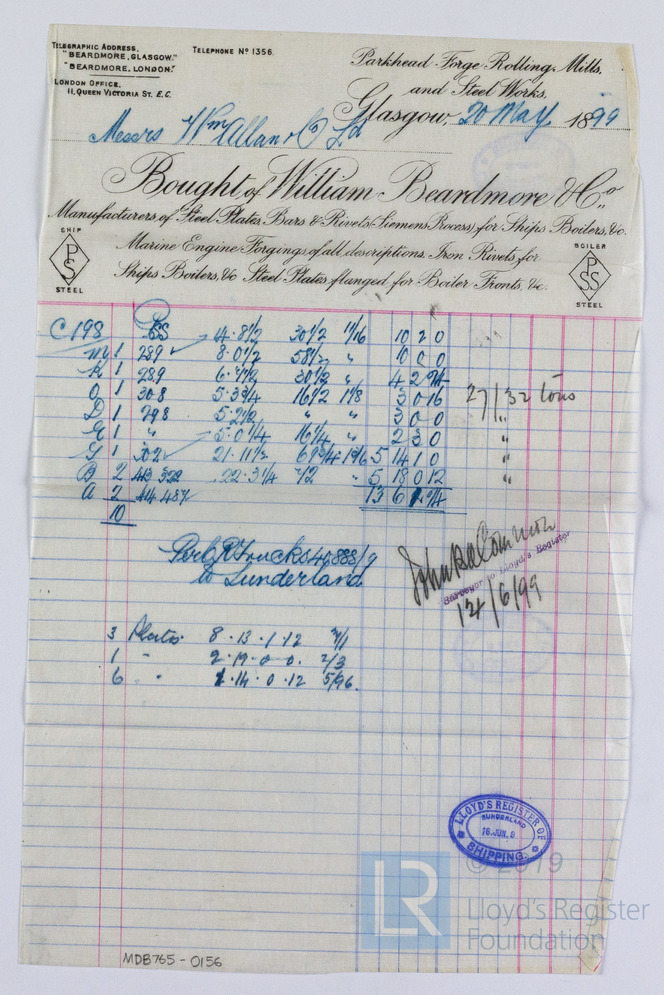 TELEGRAPHIC ADDRESS,
"BEARDMORE, GLASGOW."
"BEARDMORE, LONDON."
TELEPHONE No 1356.
LONDON OFFICE,
11, QUEEN VICTORIA ST. E.C.
Parkhead Forge Rolling Mills,
and Steel Works,
Glasgow, 20 May 1899
Messrs Wm Allan & Co Ld
Bought of William Beardmore & Co.
Manufacturers of Steel Plates Bars & Rivets (Siemens Process), for Ships Boilers, &c.
Marine Engine Forgings of all descriptions Iron Rivets, for
Ships Boilers, &c Steel Plates flanged for Boiler Fronts, &c.
SHIP
PS
STEEL
BOILER
PSS
STEEL
C 198 14·8 1/2 30 1/2 11/16 10 2 0
M 1 289 8·0 1/2 58 1/2 " 10 0 0
K 1 289 30 1/2 " 4 2
O 1 308 5·3 3/4 16 1/2 1 1/8 3 0 16
D 1 298 5·2 1/2 " " 3 0 0
1 " 5·0 1/4 16 1/4 " 2 3 0
1 302 21·11 1/2 5 14 1 0
B 2 413 322 22·3 1/4 " 5 18 0 12
A 2 414 487 13 6
10
27/32 tons
"
"
"
Per C R Trucks 40888/9
to Sunderland
John B
Surveyor to Lloyd's Register
12/6/99
3 Plates 8·13·1·12
1 " 2·19·0·0. 2/3
6 " 1·14·0·12 5/96.
LLOYD'S REGISTER OF
SUNDERLAND
16.JUN.9
SHIPPING.
LR
© 2019
Lloyd's Register
Foundation
MDB765-0156